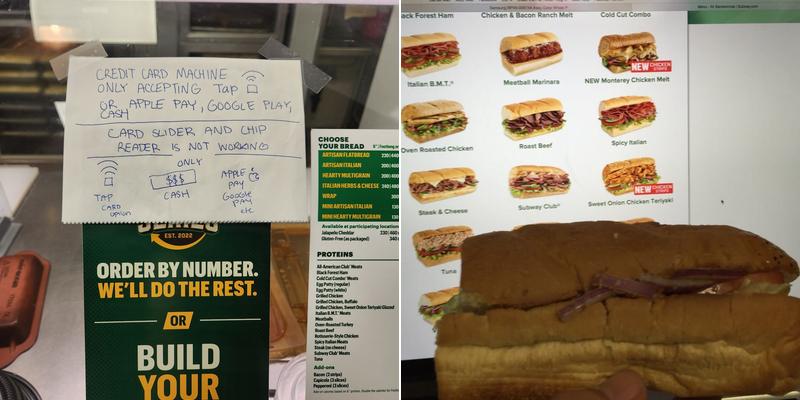 CREDIT CARD MACHINE
ONLY ACCEPTING TAP
OR APPLE PAY, GOOGLE PLAY,
CASH
CARD SLIDER AND CHIP
READER IS NOT WORKING
ONLY
TAP
CARD
OPTION
$$$
CASH
APPLE
PAY
Google
PAY
etc
SERIES
EST. 2022
ORDER BY NUMBER.
WE'LL DO THE REST.
OR
BUILD
YOUR
CHOOSE
YOUR BREAD
ARTISAN FLATBREAD
ARTISAN ITALIAN
HEARTY MULTIGRAIN
ITALIAN HERBS & CHEESE
WRAP 300
MINI ARTISAN ITALIAN 130
MINI HEARTY MULTIGRAIN 130
Available at participating locations
Jalapeño Cheddar
Gluten-Free (as packaged) 340
PROTEINS
All-American Club® Meats
Black Forest Ham
Cold Cut Combo® Meats
Egg Patty (regular)
Egg Patty (white)
Grilled Chicken
Grilled Chicken, Buffalo
Grilled Chicken, Sweet Onion Teriyaki Glazed
Italian B.M.T.® Meats
Meatballs
Oven-Roasted Turkey
Roast Beef
Rotisserie-Style Chicken
Spicy Italian Meats
Steak (no cheese)
Subway Club® Meats
Tuna
Add-ons
Bacon (2 strips)
Capicola (3 slices)
Pepperoni (3 slices)
ack Forest Ham
Chicken & Bacon Ranch Melt
Cold Cut Combo
Italian B.M.T.®
Meatball Marinara
NEW CHICKEN STRIPS
NEW Monterey Chicken Melt
Oven Roasted Chicken
Roast Beef
Spicy Italian
Steak & Cheese
Subway Club®
NEW CHICKEN STRIPS
Sweet Onion Chicken Teriyaki
Tuna